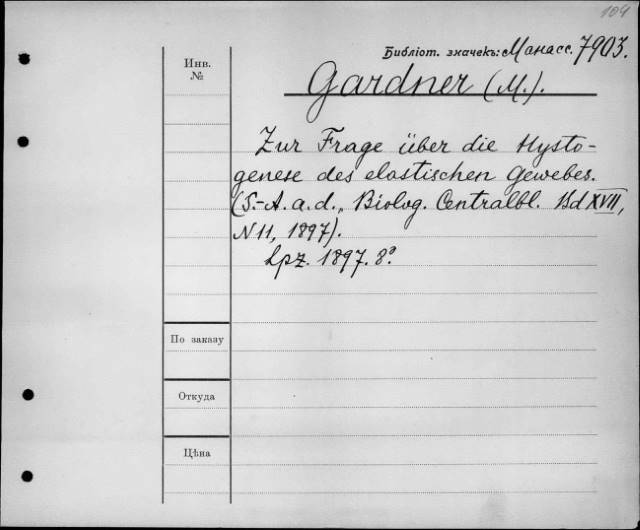 104
Библіот. значекъ: Манасс. 7903.
Инв.
№
Gardner (M.).
Zur Frage über die Hysto-
genese des elastischen Gewebes.
(S.-A. a. d., Biolog. Centralbl. Bd XVII,
N 11, 1897).
Lpz. 1897. 8°.
По заказу
Откуда
Цѣна